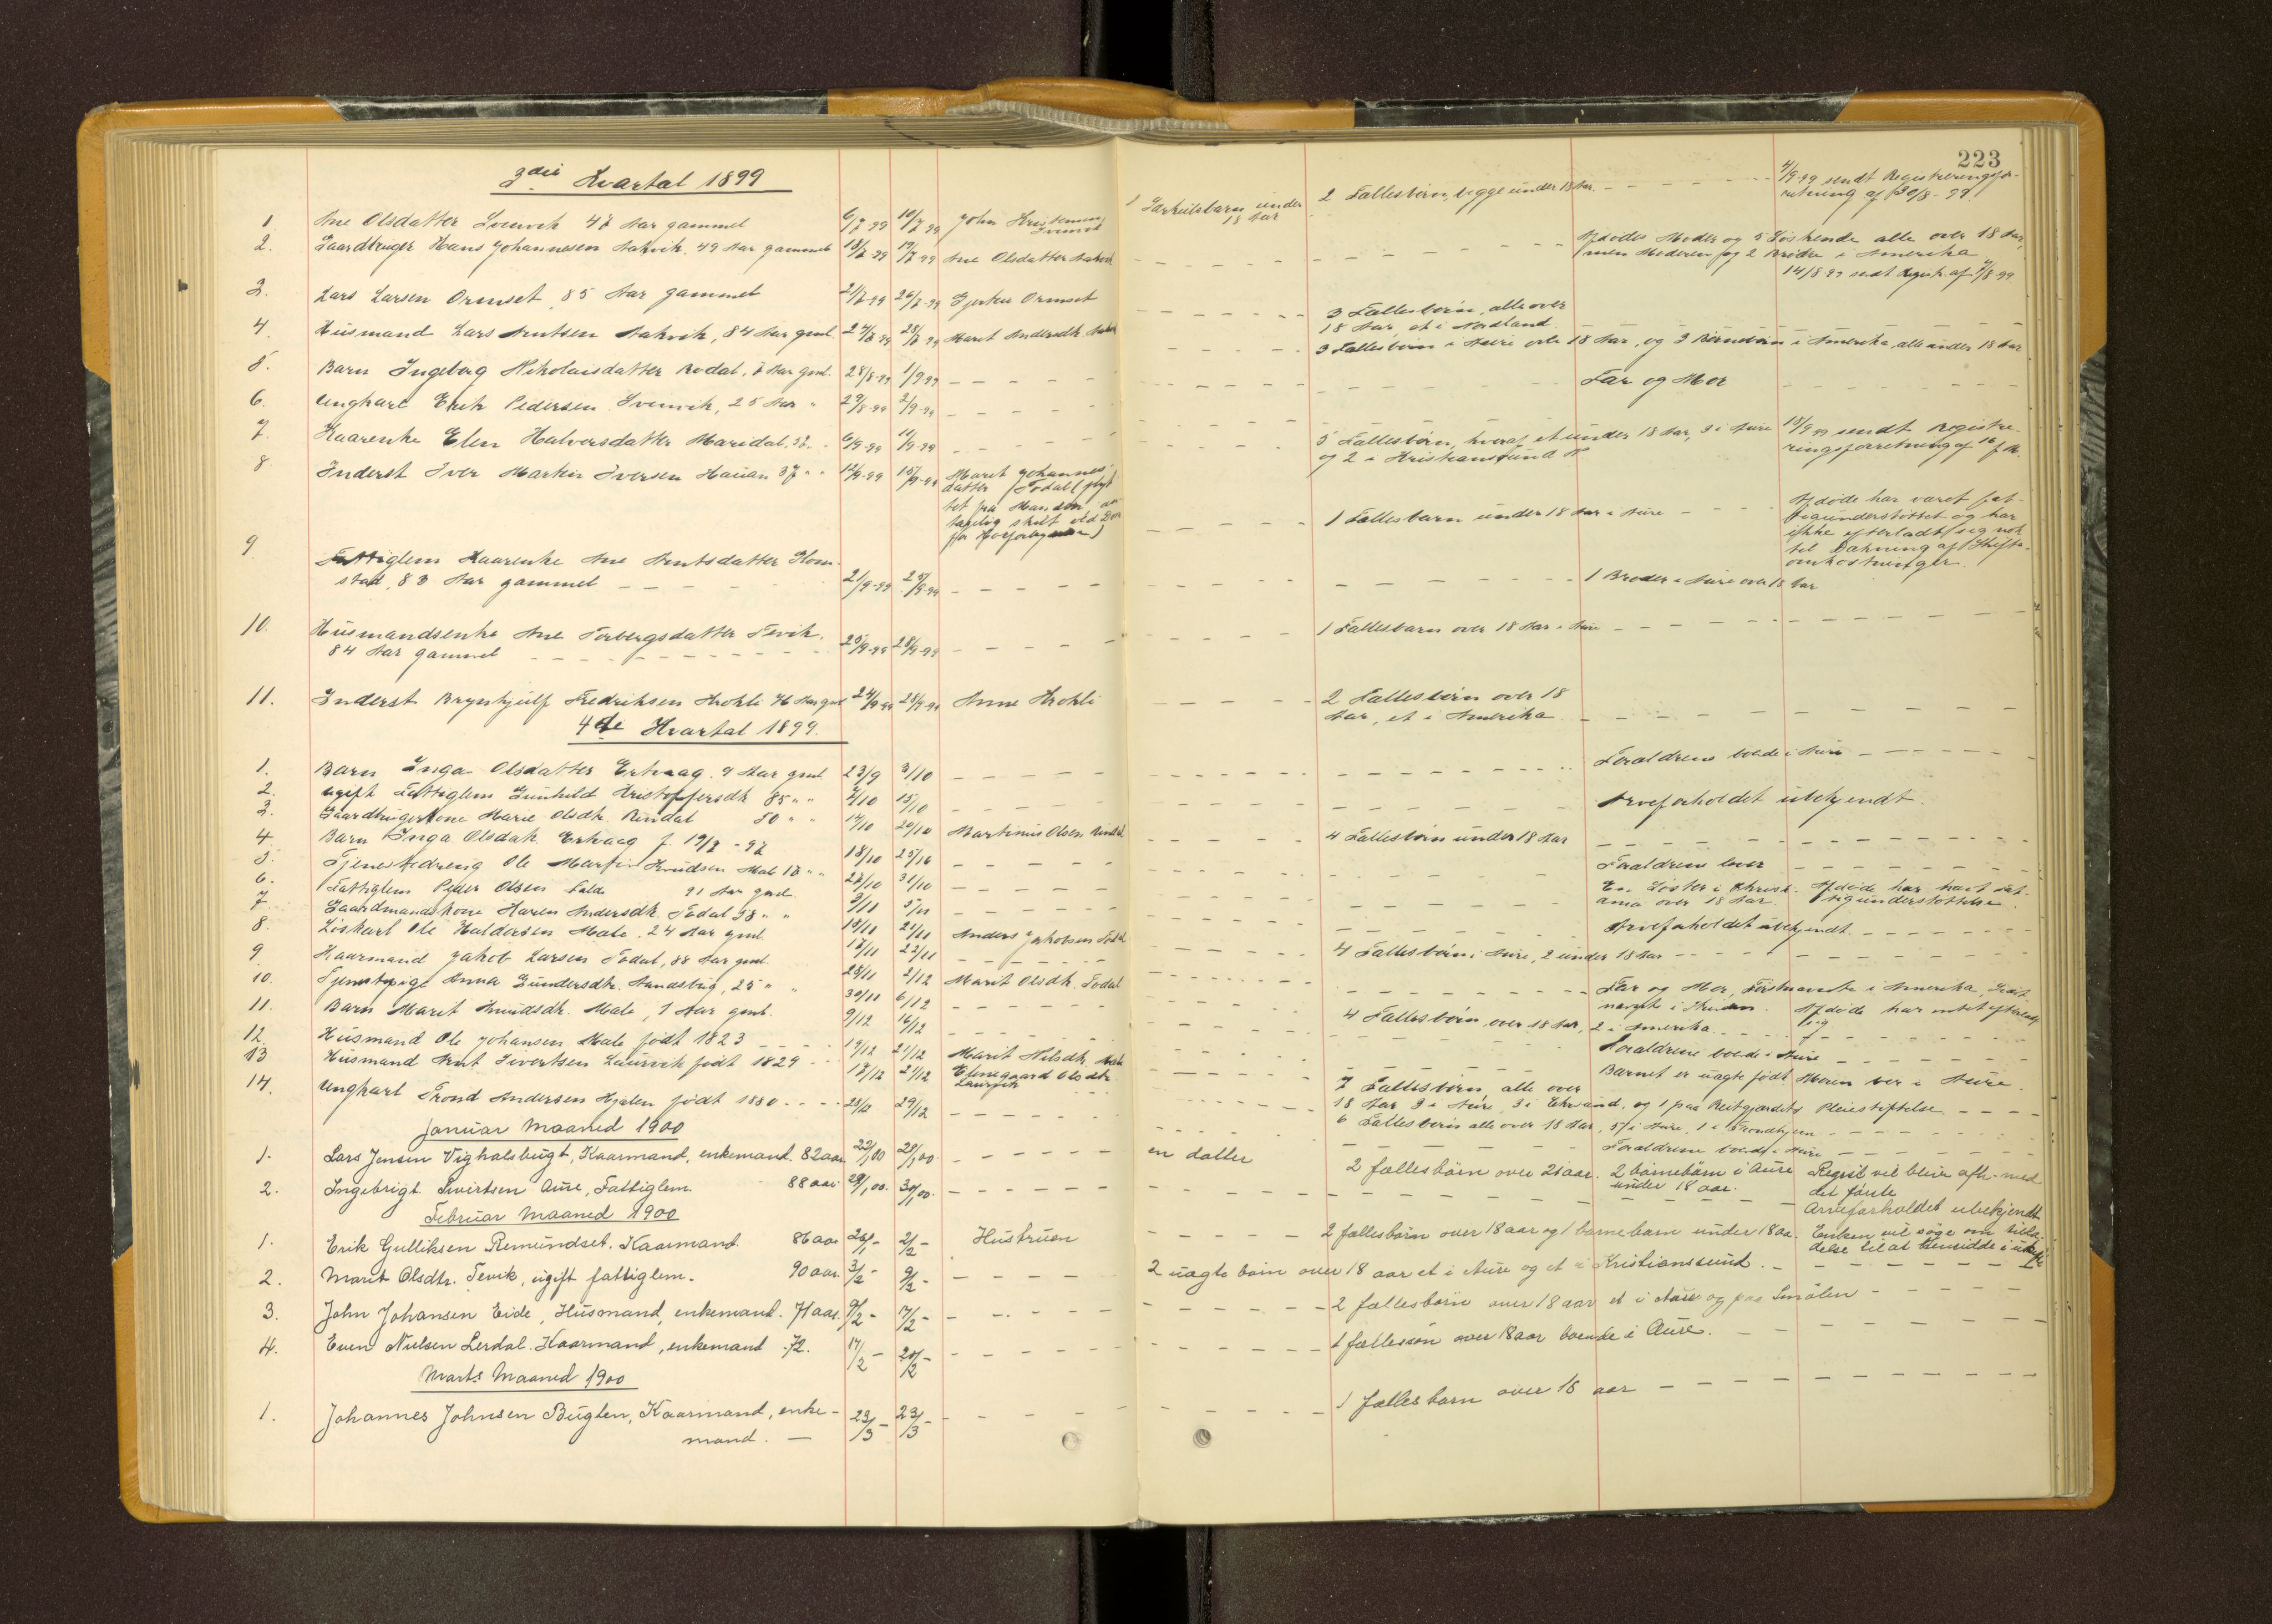 223
3die Kvartal 1899
1. Ane Olsdatter 47 Aar gammel 6/7 99 10/7 99 John Kristensen 1 Særkulsbarn under 18 Aar 2 Fællesbørn, begge under 18 Aar 4/9 99 sendt Registreringsfor-
retning af 30/8-99
2. Gaardbruger Hans Johannesen Aakvik 49 Aar gammel 13/7-99 17/7-99 Ane Olsdatter Aakvik Afdødes Moder og 5 Søskende alle over 18 Aar,
men Moderen og 2 Brødre i Amerika
14/8 99 sendt Registr. af 7/8-99
3. Lars Larsen Ormset 85 Aar gammel 21/7-99 26/7-99 Ormset 3 Fællesbørn, alle over
18 Aar, et i Nordland
4. Husmand Lars Arntsen Aakvik, 84 Aar gml. 24/7-99 28/7-99 Marit Andersdtr. 3 Fællesbørn i Aure over 18 Aar, og 3 Børnebørn i Amerika, alle under 18 Aar
5. Barn Ingeborg Nikolaisdatter Rodal, 7 Aar gml. 28/8-99 1/9 99 Far og Mor
6. Ungkarl Erik Pedersen 25 Aar " 29/8-99 2/9-99
7. Kaarenke Elen Halversdatter Mæridal, 6/9-99 11/9-99 5 Fællesbørn, hveraf et under 18 Aar, 3 i Aure
og 2 i Kristiansund N 18/9 99 sendt Registre-
ringsforretning af 16 f.M.
8 Inderst Iver Martin Iversen Hauan 37 " " 12/9-99 15/9-99 Marit Johannes-
datter Todal
1 Fællesbarn under 18 Aar i Aure Afdøde har været fat-
tigunderstøttet og har
ikke efterladt sig nok
til Dækning af Skifte-
omkostninger.
9 Fattiglem Kaarenke Ane Arntsdatter Slom-
stad, 83 Aar gammel 21/9-99 25/9-99 1 Broder i Aure over 18 Aar
10. Husmandsenke Ane Torbergsdatter Tevik.
84 Aar gammel 25/9-99 28/9-99 1 Fællesbarn over 18 Aar i Aure
11. Inderst Brynhjulf Fredriksen Krokli 76 Aar gml 24/9-99 28/9-99 Anne Krokli 2 Fællesbørn over 18
Aar, et i Amerika
4de Kvartal 1899.
1. Barn Inga Olsdatter Ertvaag 9 Aar gml 23/9 3/10 Forældrene boende i Aure
2. ugift Fattiglem Gunhild Kristoffersdtr 85 " " 7/10 15/10 Arveforholdet ubekjendt.
3. Gaardbrugerkone Marie Olsdtr. Rindal 50 " " 14/10 20/10 Martinus Olsen Rindal 4 Fællesbørn under 18 Aar
4 Barn Inga Olsdatr. Ertvaag f. 19/7-97 18/10 25/10 Forældrene lever
5. Tjenestedreng Ole Martin Knudsen Male 17 " " 27/10 31/10 En Søster i Kristi-
ania over 18 Aar. Afdøde har havt fat-
tigunderstøttelse
6. Fattiglem Peder Olsen Falde 91 Aar gml. 3/11 5/11 Arveforholdet ubekjendt.
7. Gaardmandskone Karen Andersdtr. Todal 58 " " 15/11 21/11 Anders Jakobsen Todal 4 Fællesbørn i Aure, 2 under 18 Aar
8. Løskarl Ole Haldorsen Male. 24 Aar gml. 17/11 22/11 Far og Mor,
9. Kaarmand Jakob Larsen Todal, 88 Aar gml. 28/11 2/12 Marit Olsdtr. Todal 4 Fællesbørn, over 18 Aar, 2 i Amerika
10. Tjenestpige Anna Gundersdtr. 25 " " 30/11 6/12 Forældrene boende i Aure
11. Barn Marit Knudsdtr. Male, 1 Aar gml. 9/12 16/12 Barnet er uægte født Moren bor i Aure.
12 Husmand Ole Johansen Male født 1823 14/12 21/12 Marit Nilsdtr. Male 7 Fællesbørn alle over
18 Aar 3 i Aure, 3 i og 1 paa Reitgjærdets Pleiestiftelse
13 Husmand Arnt Sivertsen Laurvik født 1829 17/12 21/12 Elenegaard Olsdtr
Laurvik 6 Fællesbørn alle over 18 Aar, 5 i Aure, 1 i Trondhjem
14. Ungkarl Trond Andersen Hjelen født 1880 23/12 29/12 Forældrene boende i Aure
Januar Maaned 1900
1. Lars Jensen Vighalsbugt, Kaarmand, enkemand. 82 aar 22/1 00 29/1 00 en datter 2 fællesbørn over 21 aar. 2 børnebørn i Aure
under 18 aar. Regist vil bleve afh. med
det første
2. Ingebrigt Sivertsen Aure, Fattiglem. 88 aar 29/1 00. 30/1 00. Arveforholdet ubekjendt
Februar Maaned 1900
1. Erik Gulliksen Remundset. Kaarmand. 86 aar 26/1 - 2/2 - Hustruen 2 fællesbørn over 18 aar og 1 barnebarn under 18 aa. Enken vil søge om tilla-
delse til at hensidde i uskifte
2. Marit Olsdtr. Tevik, ugift fattiglem. 90 aar. 3/2 - 9/2 - 2 uægte børn over 18 aar et i Aure og et i Kristianssund.
3. John Johansen Eide, Husmand, enkemand. 71 aar. 9/2 - 17/2 - 2 fællesbørn over 18 aar et i Aure og paa Smølen
4. Even Nielsen Lerdal. Kaarmand, enkemand 72. 17/2 - 20/2 - 1 fællessøn over 18 aar boende i Aure.
Marts Maaned 1900
1. Johannes Johnsen Buglen, Kaarmand, enke-
mand. 23/3 - 23/3 - 1 fællesbarn over 18 aar